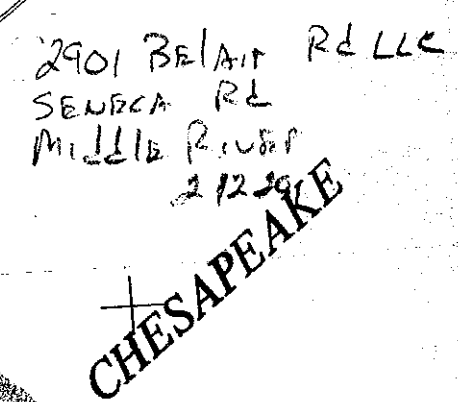 2901 BelAir Rd LLC
SENECA Rd
Middle River
21220
CHESAPEAKE